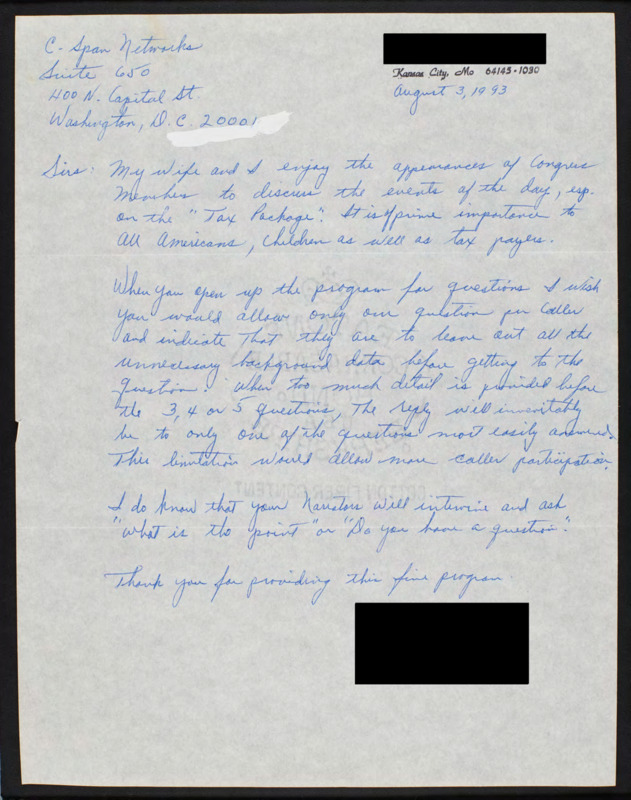 C-Span Networks
Suite 650
400 N. Capital St.
Washington, D.C. 20001
Kansas City, Mo 64145-1030
August 3, 1993
Sirs: My wife and I enjoy the appearances of Congress
Members to discuss the events of the day, esp.
on the "Tax Package". It is of prime importance to
All Americans, Children as well as tax payers.
When you open up the program for questions I wish
you would allow only one question per caller
and indicate that they are to leave out all the
unnecessary background data before getting to the
question. When too much detail is provided before
the 3, 4 or 5 questions, the reply will inevitably
be to only one of the questions most easily answered.
This limitation would allow more caller participation.
I do know that your Narrators will intervine and ask
"what is the point" or "Do you have a question".
Thank you for providing this fine program.
COTTON FIBER CONTENT